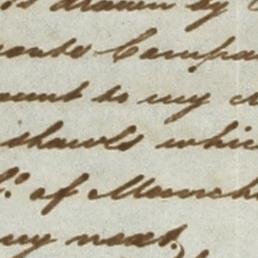 drawn by
Compa
ount to my
shawls whic
of Manch
my next